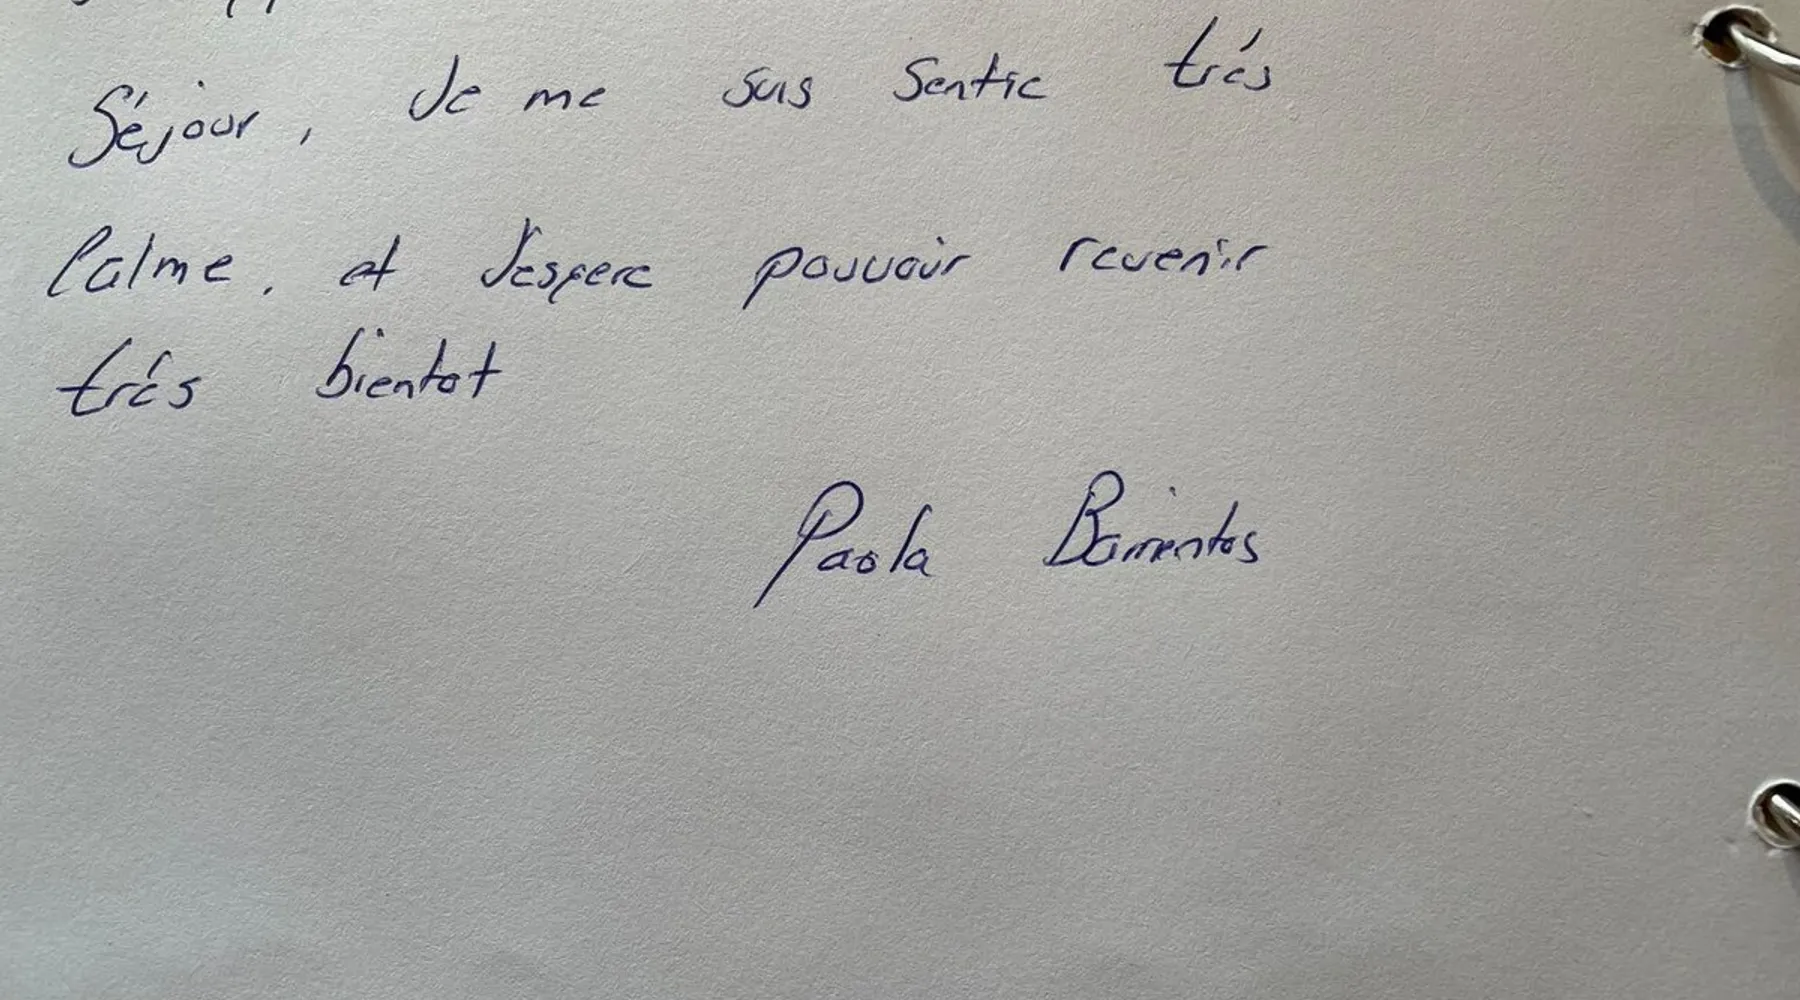 Séjour, Je me suis Sentie trés
Calme. et J'espere pouvoir revenir
trés bientot
Paola Barrientos